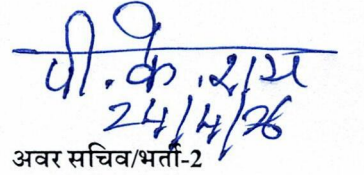 पी. के. राय
24/4/26
अवर सचिव/भर्ती-2